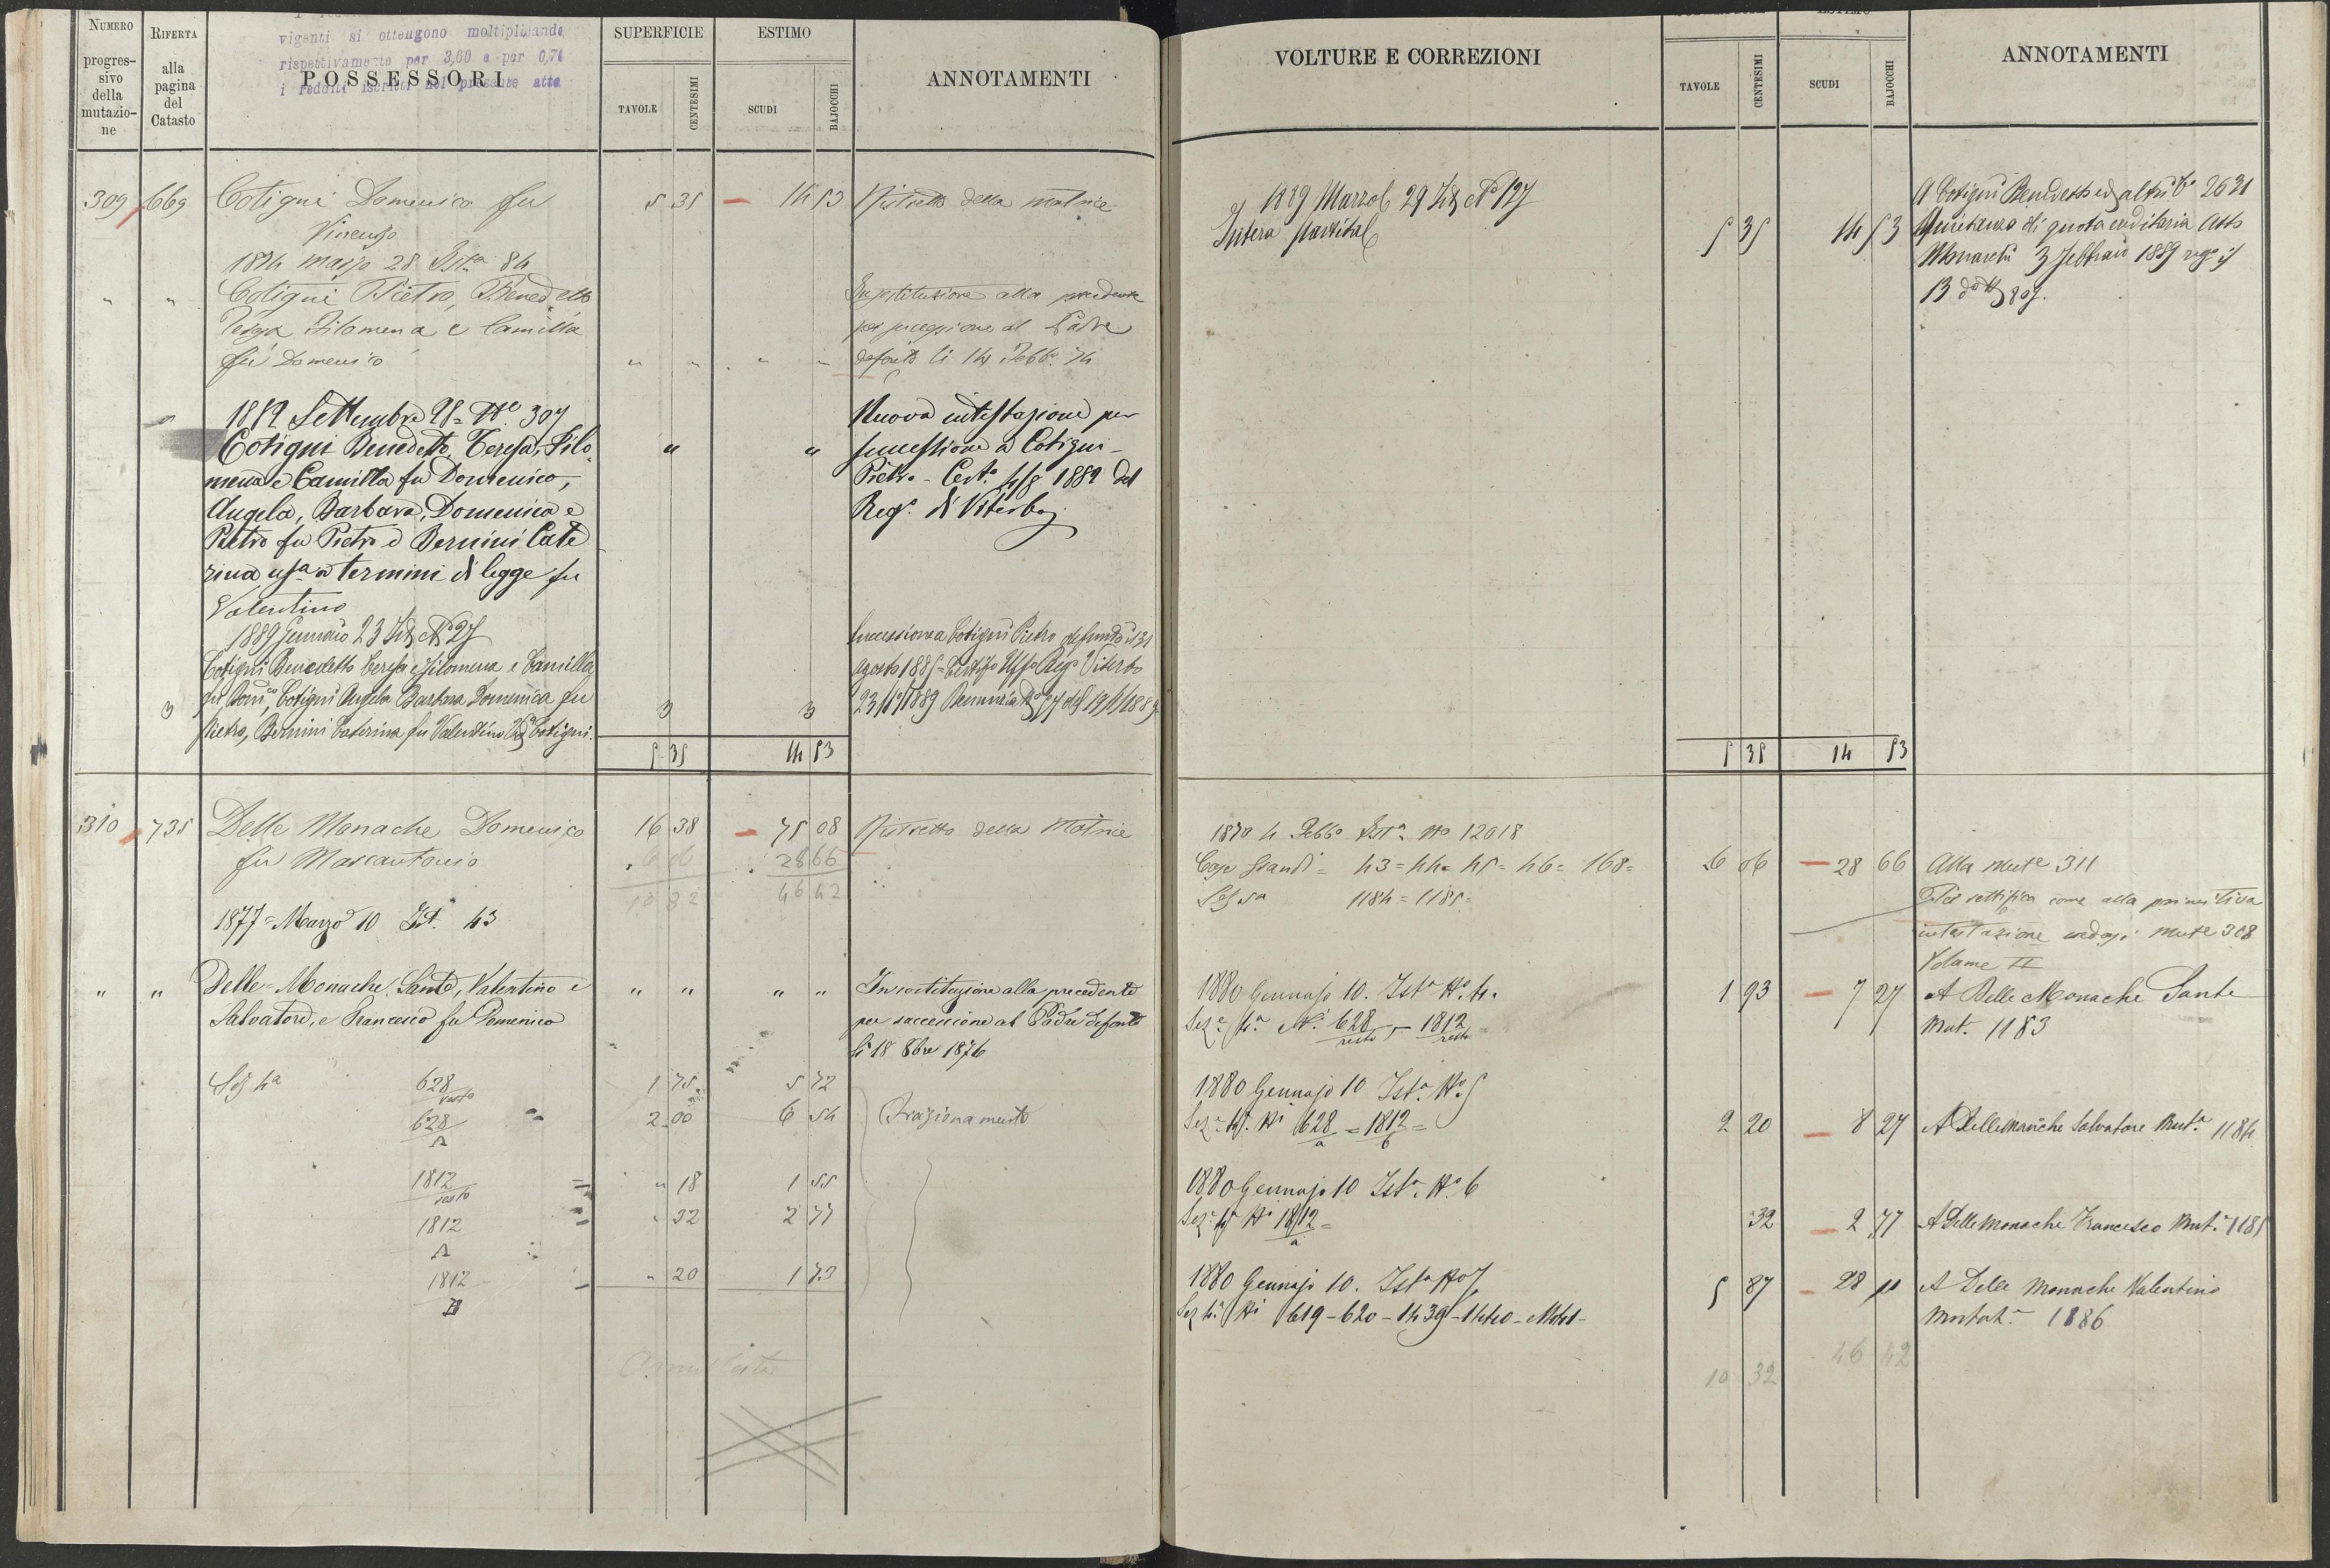 NUMERO
progres-
sivo
della
mutazio-
ne
RIFERTA
alla
pagina
del
Catasto
vigenti si ottengono moltiplicando
rispettivamente per 3,60 e per 0,71
i redditi iscritti nel presente atto
POSSESSORI
SUPERFICIE
TAVOLE
CENTESIMI
ESTIMO
SCUDI
BAJOCCHI
ANNOTAMENTI
309 669 Cotigni Domenico fu 5 35 14 53 Ristretto della matrice
Vincenzo
1874 marzo 28 Ist.a 84
" " Cotigni Pietro, Benedetto
Teresa Filomena e Camilla
fu Domenico " " " "
In sostituzione alla precedente
per successione al Padre
defonto li 14 Febb.o 74
1882 Settembre 28 = N.o 307
Cotigni Benedetto, Teresa, Filo-
mena e Camilla fu Domenico,
Angela, Barbara, Domenica e
Pietro fu Pietro e Bernini Cate
rina us.a a termini di legge fu
Valentino
" "
Nuova intestazione per
successione a Cotigni
Pietro - Cert.o 4/8 1882 del
Reg.o di Viterbo
1889 Gennaio 23 Ist. N.o 27
Cotigni Benedetto Teresa e Filomena e Camilla
fu Dom.co, Cotigni Angela Barbara Domenica fu
Pietro, Bernini Caterina fu Valentino Cotigni.
Successione a Cotigni Pietro defunto il 31
Agosto 1885 = Uff.o Reg.o Viterbo
5 35 14 53
310 735 Delle Monache Domenico 16 38 75 08 Ristretto della Matrice
fu Marcantonio 6 06 28 66
10 32 46 42
1877 = Marzo 10 Ist. 43
" " Delle Monache Sante, Valentino e " " " "
Salvatore, e Francesco fu Domenico
In sostituzione alla precedente
per successione al Padre defonto
li 18 8bre 1876
Sez 4a 628 resto 1 75 5 72
628 A 2 00 6 54 Frazionamento
1812 resto " 18 1 55
1812 A " 32 2 77
1812 B " 20 1 73
VOLTURE E CORREZIONI
TAVOLE
CENTESIMI
SCUDI
BAJOCCHI
ANNOTAMENTI
1889 Marzo 29 Ist. N.o 127
Intera partita 5 35 14 53
A Cotigni Benedetto ed altri 2631
di quota ereditaria Atto
3 Febbraio 1889
1870 4 Febb.o Ist.a No 12018
Case Grandi = 43 = 44 = 45 = 46 = 168 = 6 06 28 66 Alla Mut.e 311
Sez 5a 1184 = 1185 =
Si rettifica come alla primitiva
intestazione vedasi Mut.e 308
Volume II
1880 Gennajo 10. Ist.a N.o 4. 1 93 7 27 A Delle Monache Sante
Sez.e 4.a N.i 628 resto - 1812 resto = Mut. 1183
1880 Gennajo 10 Ist.a N.o 5
Sez.e 4.a N.i 628 a = 1812 b = 2 20 8 27 A Delle Monache Salvatore Mut.a 1184
1880 Gennajo 10 Ist.a N.o 6
Sez.e 4.a N.i 1812 a = 32 2 77 A Delle Monache Francesco Mut.a 1185
1880 Gennajo 10. Ist.a N.o 7 5 87 28 11 A Delle Monache Valentino
Sez 4.a N.i 619 - 620 - 1439 - 1440 - 1441 - Mutat.e 1186
10 32 46 42